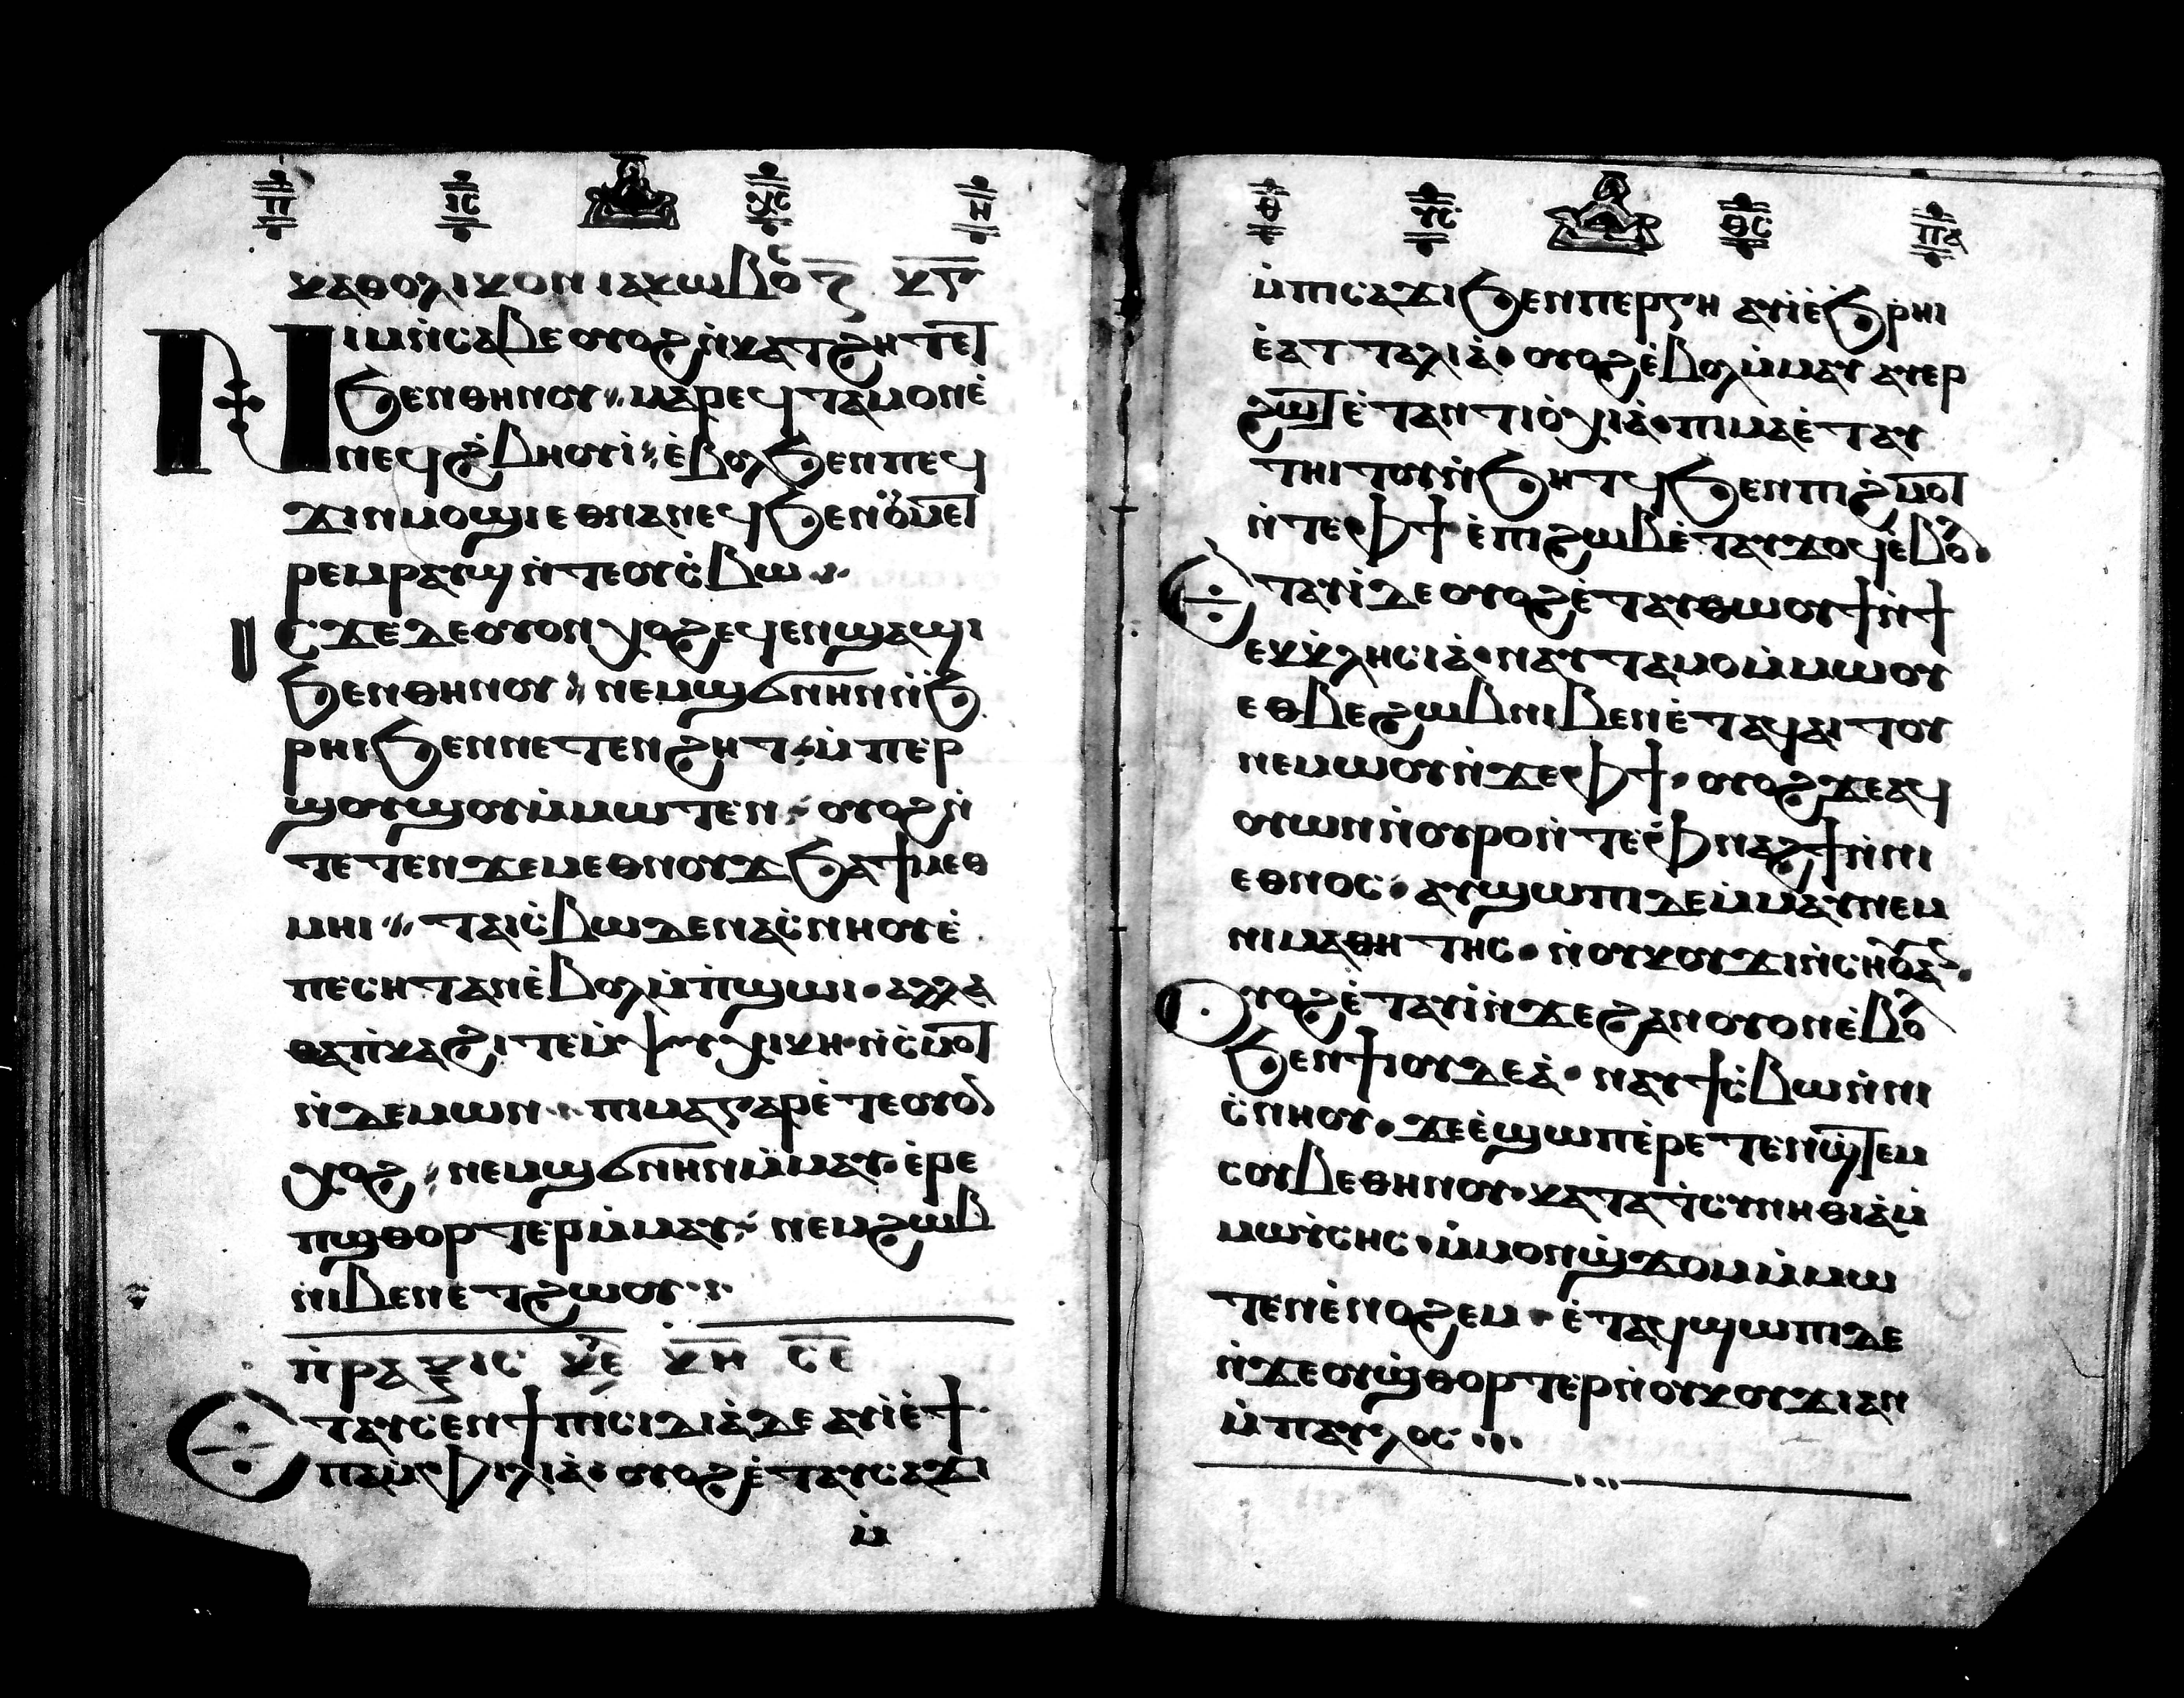 ⲡ ⲓⲥ ⲭⲥ ⲏ
ⲕⲁⲑⲟⲗⲓⲕⲟⲛ ⲓⲁⲕⲱⲃⲟⲥ ⲍ̅ ⲕ̅ⲅ̅
ⲛⲓⲙ ⲛ̇ⲥⲁⲃⲉ ⲟⲩⲟϩ ⲛ̇ⲕⲁⲧϩⲏⲧ ⲉⲧ
ϧⲉⲛ ⲑⲏⲛⲟⲩ ⲙⲁⲣⲉϥⲧⲁⲙⲟⲛ ⲉ̇
ⲛⲉϥϩ̇ⲃⲏⲟⲩⲓ̇ ⲉ̇ⲃⲟⲗ ϧⲉⲛ ⲡⲉϥ
ϫⲓⲛⲙⲟϣⲓ ⲉⲑⲛⲁⲛⲉϥ ϧⲉⲛ ⲟⲩⲙⲉⲧ
ⲣⲉⲙⲣⲁⲩϣ ⲛ̇ⲧⲉ ⲟⲩⲥ̇ⲃⲱ
ⲓⲥϫⲉ ⲇⲉ ⲟⲩⲟⲛ ⲭⲟϩ ⲉϥⲉⲛϣⲁϣⲓ
ϧⲉⲛ ⲑⲏⲛⲟⲩ ⲛⲉⲙ ϣϭⲛⲏⲛ ⲛ̇ϧ
ⲣⲏⲓ ϧⲉⲛ ⲛⲉⲧⲉⲛϩⲏⲧ ⲙ̇ⲡⲉⲣ
ϣⲟⲩϣⲟⲩ ⲙ̇ⲙⲱⲧⲉⲛ ⲟⲩⲟϩ ⲛ̇
ⲧⲉⲧⲉⲛϫⲉⲙⲉⲑⲛⲟⲩϫ ϧⲁ ϯⲙⲉⲑ
ⲙⲏⲓ ⲧⲁⲓⲥ̇ⲃⲱ ⲇⲉ ⲛⲁⲥ̇ⲛⲏⲟⲩ ⲉ̇
ⲡⲉⲥⲏⲧ ⲁⲛ ⲉ̇ⲃⲟⲗ ⲙ̇ⲡ̇ϣⲱⲓ ⲁⲗⲗⲁ
ⲑⲁ ⲡ̇ⲕⲁϩⲓ ⲧⲉ ⲙ̇ⲯⲩⲭⲓⲕⲏ ⲛ̇ⲥ̇ⲙⲟⲧ
ⲛ̇ⲇⲉⲙⲱⲛ ⲡⲓⲙⲁ ⲅⲁⲣ ⲉ̇ⲧⲉ ⲟⲩⲟⲛ
ⲭⲟϩ ⲛⲉⲙ ϣϭⲛⲏⲛ ⲙ̇ⲙⲁⲩ ⲉ̇ⲣⲉ
ⲡϣⲑⲟⲣⲧⲉⲣ ⲙ̇ⲙⲁⲩ ⲛⲉⲙ ϩⲱⲃ
ⲛⲓⲃⲉⲛ ⲉⲧϩⲱⲟⲩ
ⲡ̇ⲣⲁⲝⲓⲥ ⲕⲉ ⲕ̅ⲏ̅ ⲥ̅ⲉ̅
ⲉⲧⲁⲩⲥⲉⲛ ϯⲡⲓⲥⲓⲇⲓⲁ̇ ⲇⲉ ⲁⲩⲓ̇ ⲉ̇ϯ
ⲡⲁⲙ̇ⲫⲓⲗⲓⲁ̇ ⲟⲩⲟϩ ⲉ̇ⲧⲁⲩⲥⲁϫⲓ
ⲙ̇
ⲑ ⲩⲥ ⲑⲥ ⲡⲁ
ⲙ̇ⲡⲓⲥⲁϫⲓ ϧⲉⲛ ⲡⲉⲣⲅⲏ ⲁⲩⲓ̇ ⲉ̇ϧⲣⲏⲓ
ⲉ̇ⲁⲧⲧⲁⲗⲓⲁ̇ ⲟⲩⲟϩ ⲉ̇ⲃⲟⲗ ⲙ̇ⲙⲁⲩ ⲁⲩⲉⲣ
ϩⲱⲧ ⲉ̇ⲧⲁⲛⲧⲓⲟ̇ⲭⲓⲁ̇ ⲡⲓⲙⲁ ⲉ̇ⲧⲁⲩ
ⲧⲏⲓⲧⲟⲩ ⲛ̇ϧⲏⲧϥ ϧⲉⲛ ⲡⲓϩ̇ⲙⲟⲧ
ⲛ̇ⲧⲉ ⲫϯ ⲉ̇ⲡⲓϩⲱⲃ ⲉ̇ⲧⲁⲩϫⲟϥ ⲉ̇ⲃⲟⲗ
ⲉⲧⲁⲩⲓ̇ ⲇⲉ ⲟⲩⲟϩ ⲉ̇ⲧⲁⲩⲑⲱⲟⲩϯ ⲛ̇ϯ
ⲉⲕⲕ̇ⲗⲏⲥⲓⲁ̇ ⲛⲁⲩⲧⲁⲙⲟ ⲙ̇ⲙⲱⲟⲩ
ⲉⲑⲃⲉ ϩⲱⲃ ⲛⲓⲃⲉⲛ ⲉ̇ⲧⲁϥⲁⲓⲧⲟⲩ
ⲛⲉⲙⲱⲟⲩ ⲛ̇ϫⲉ ⲫϯ ⲟⲩⲟϩ ϫⲉ ⲁϥ
ⲟⲩⲱⲛ ⲛ̇ⲟⲩⲣⲟ ⲛ̇ⲧⲉ ⲫ̇ⲛⲁϩϯ ⲛ̇ⲛⲓ
ⲉⲑⲛⲟⲥ ⲁⲩϣⲱⲡⲓ ⲇⲉ ⲙ̇ⲙⲁⲩ ⲛⲉⲙ
ⲛⲓⲙⲁⲑⲏⲧⲏⲥ ⲛ̇ⲟⲩⲕⲟⲩϫⲓ ⲛ̇ⲥⲏⲟⲩ ⲁⲛ
ⲟⲩⲟϩ ⲉ̇ⲧⲁⲩⲓ̇ ⲛ̇ϫⲉ ϩⲁⲛⲟⲩⲟⲛ ⲉ̇ⲃⲟⲗ
ϧⲉⲛ ϯⲓⲟⲩⲇⲉⲁ̇ ⲛⲁⲩϯⲥ̇ⲃⲱ ⲛ̇ⲛⲓ
ⲥ̇ⲛⲏⲟⲩ ϫⲉ ⲉ̇ϣⲱⲡ ⲉ̇ⲣⲉⲧⲉⲛϣⲧⲉⲙ
ⲥⲟⲩⲃⲉ ⲑⲏⲛⲟⲩ ⲕⲁⲧⲁ ϯⲥⲩⲛⲏⲑⲓⲁ̇ ⲙ̇
ⲙⲱⲩ̇ⲥⲏⲥ ⲙ̇ⲙⲟⲛ ϣ̇ϫⲟⲙ ⲙ̇ⲙⲱ
ⲧⲉⲛ ⲉ̇ⲛⲟϩⲉⲙ ⲉ̇ⲧⲁϥϣⲱⲡⲓ ⲇⲉ
ⲛ̇ϫⲉ ⲟⲩϣ̇ⲑⲟⲣⲧⲉⲣ ⲛ̇ⲟⲩⲕⲟⲩϫⲓ ⲁⲛ
ⲙ̇ⲡⲁⲩⲗⲟⲥ